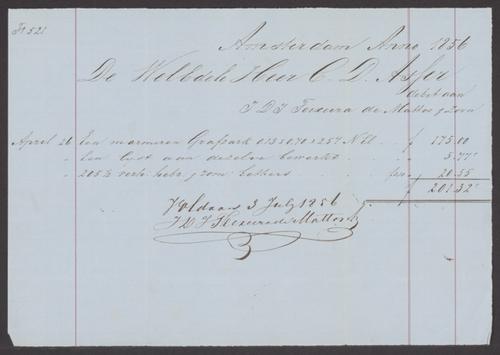 Fo 521
Amsterdam Anno 1856
De WelEdele Heer C. D. Asser
debet aan
J D J Teixeira de Mattos & Zoon
April 26 Een marmeren Grafzark 0.13 0.70 × 2.57 Nel f 175.00
" Een lyst aan dezelve bewerkt " 5.77
" 205½ verh: hebr: & rom: letters " 20.55
f 201.32
Voldaan 3 July 1856
J D J Teixeira de Mattos & Z.